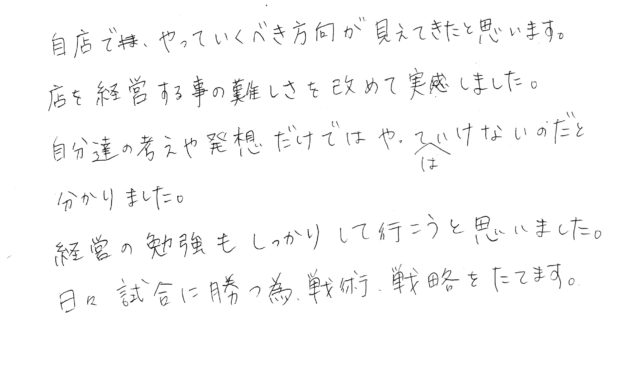 自店では、やっていくべき方向が見えてきたと思います。
店を経営する事の難しさを改めて実感しました。
自分達の考えや発想だけではやっていけないのだと
は
分かりました。
経営の勉強もしっかりして行こうと思いました。
日々試合に勝つ為、戦術、戦略をたてます。